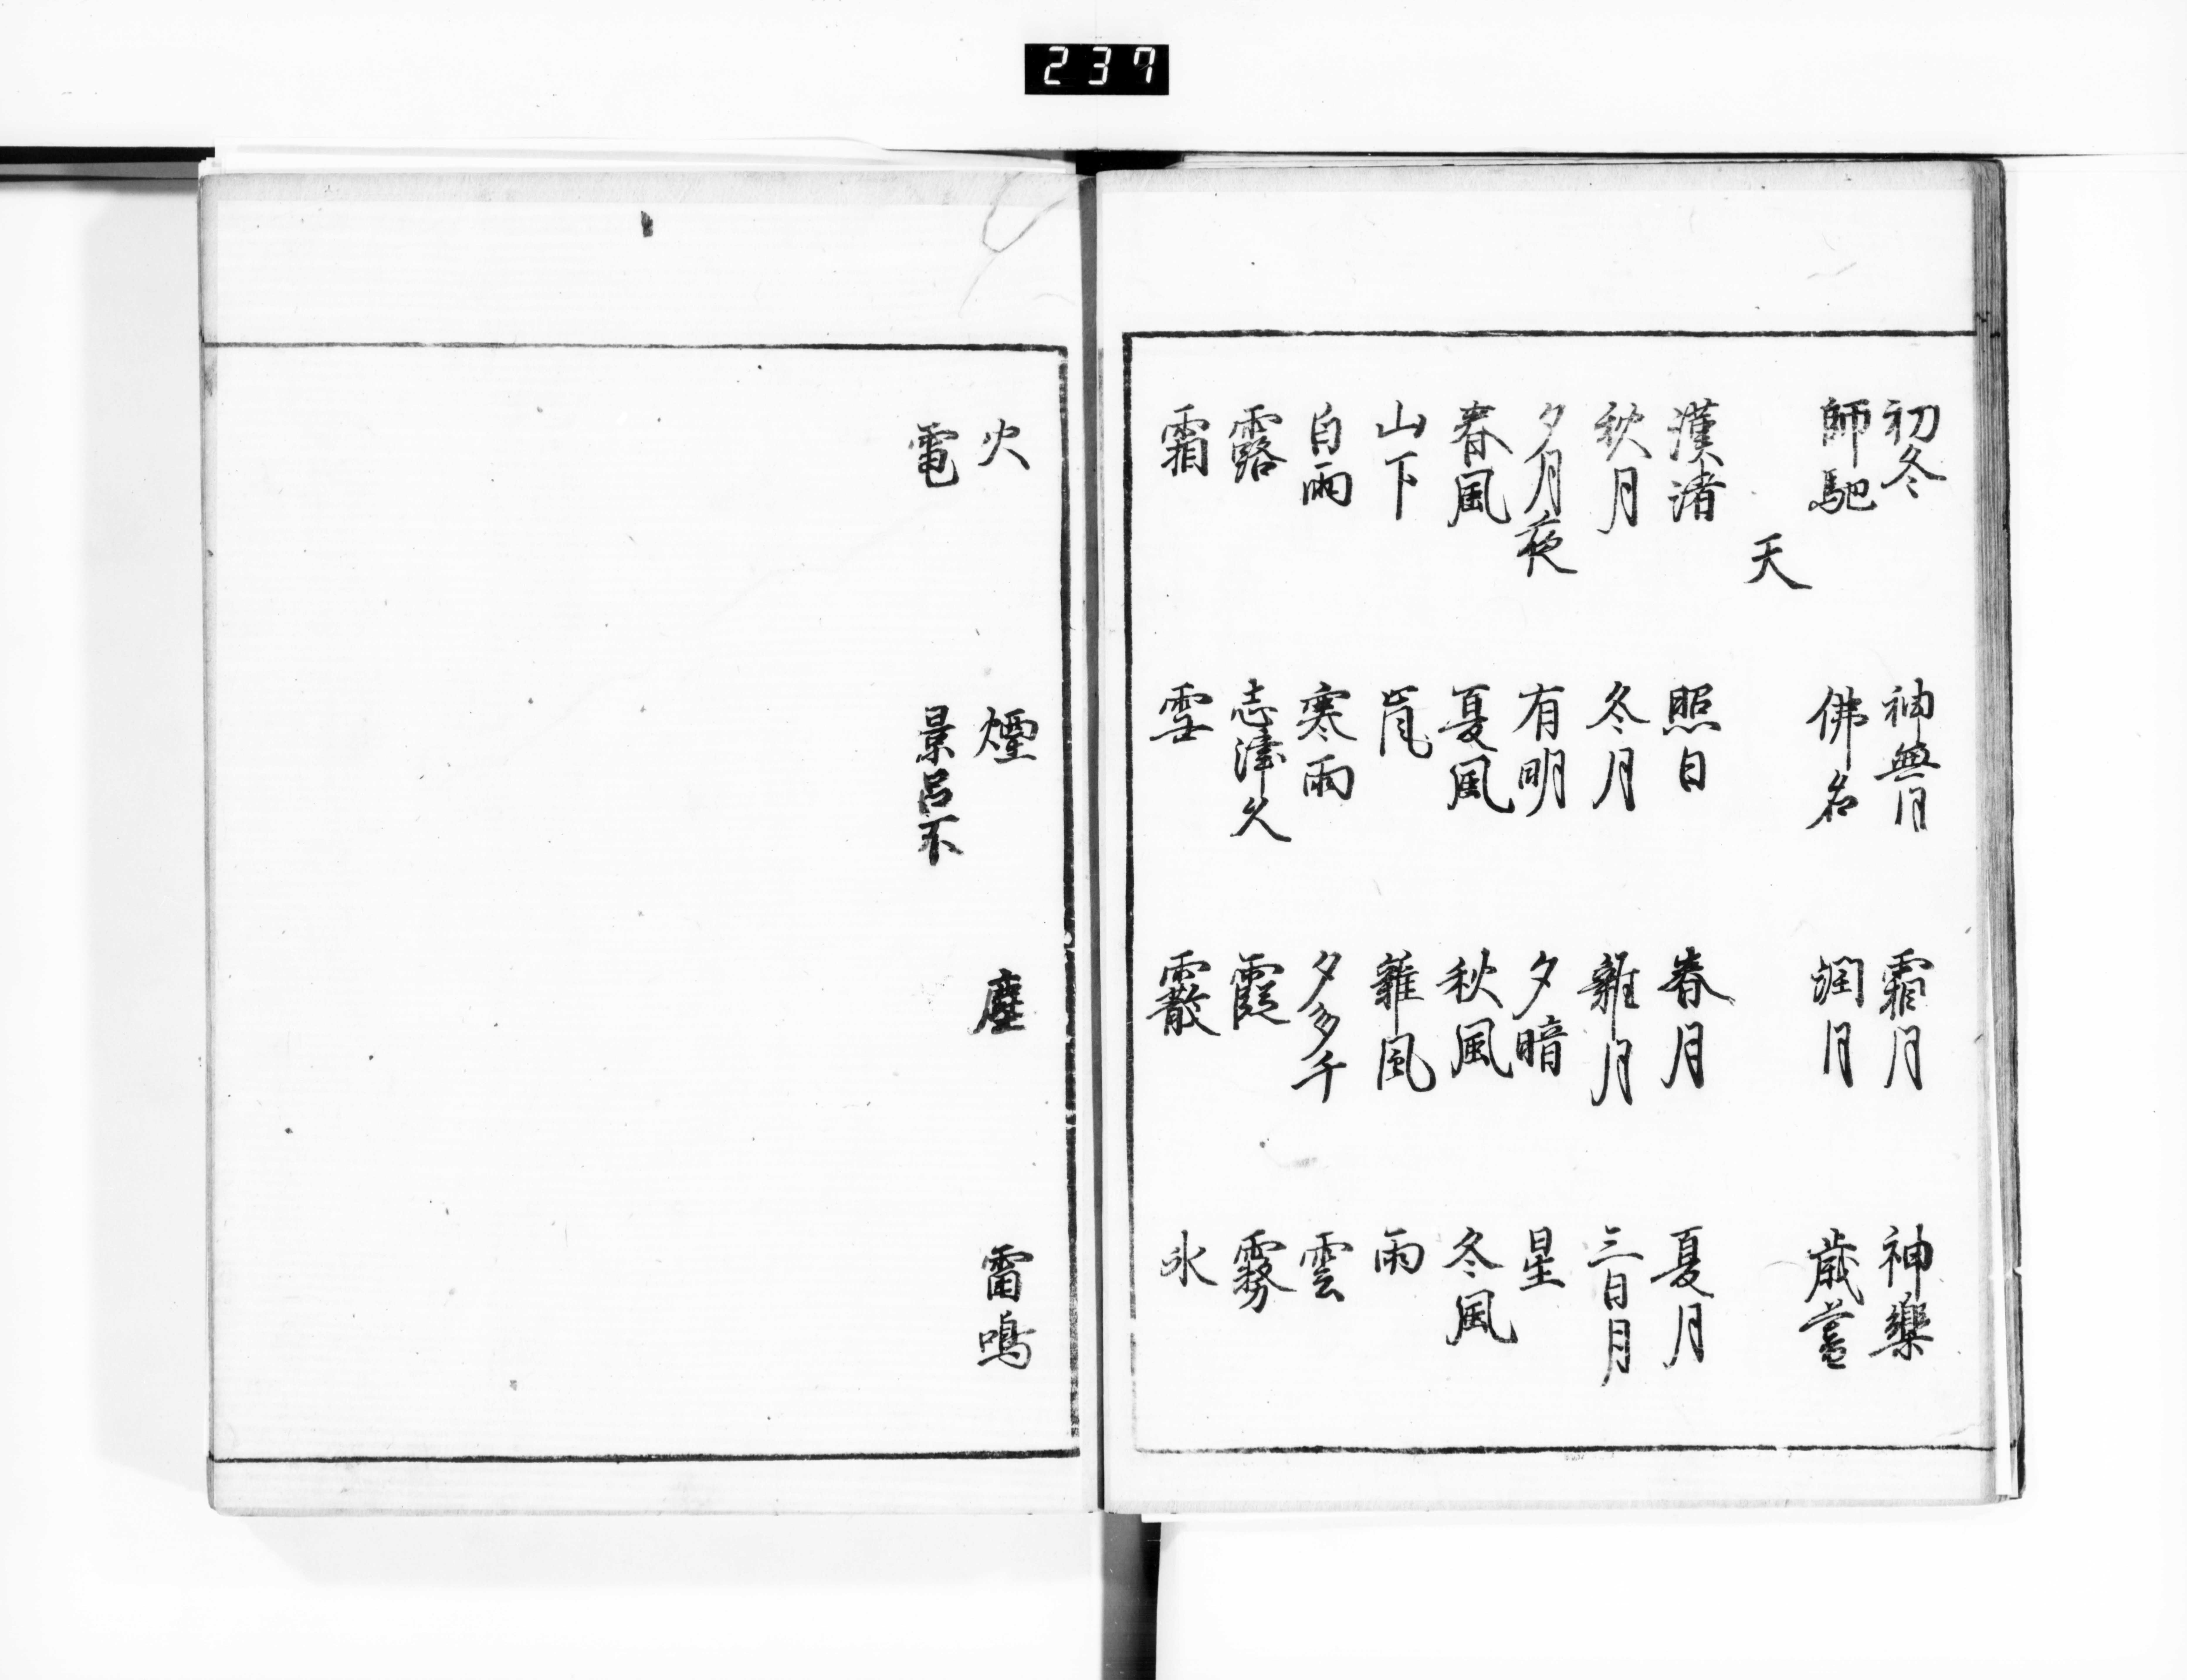 237
初冬 神無月 霜月 神樂
師馳 佛名 潤月 歳暮
天
漢渚 照日 春月 夏月
秋月 冬月 雜月 三日月
夕月夜 有明 夕暗 星
春風 夏風 秋風 冬風
山下 雜風 雨
白雨 寒雨 夕多千 雲
露 志津久 霞 霧
霜 雪 霰 氷
火 煙 塵 雷鳴
電 景呂不